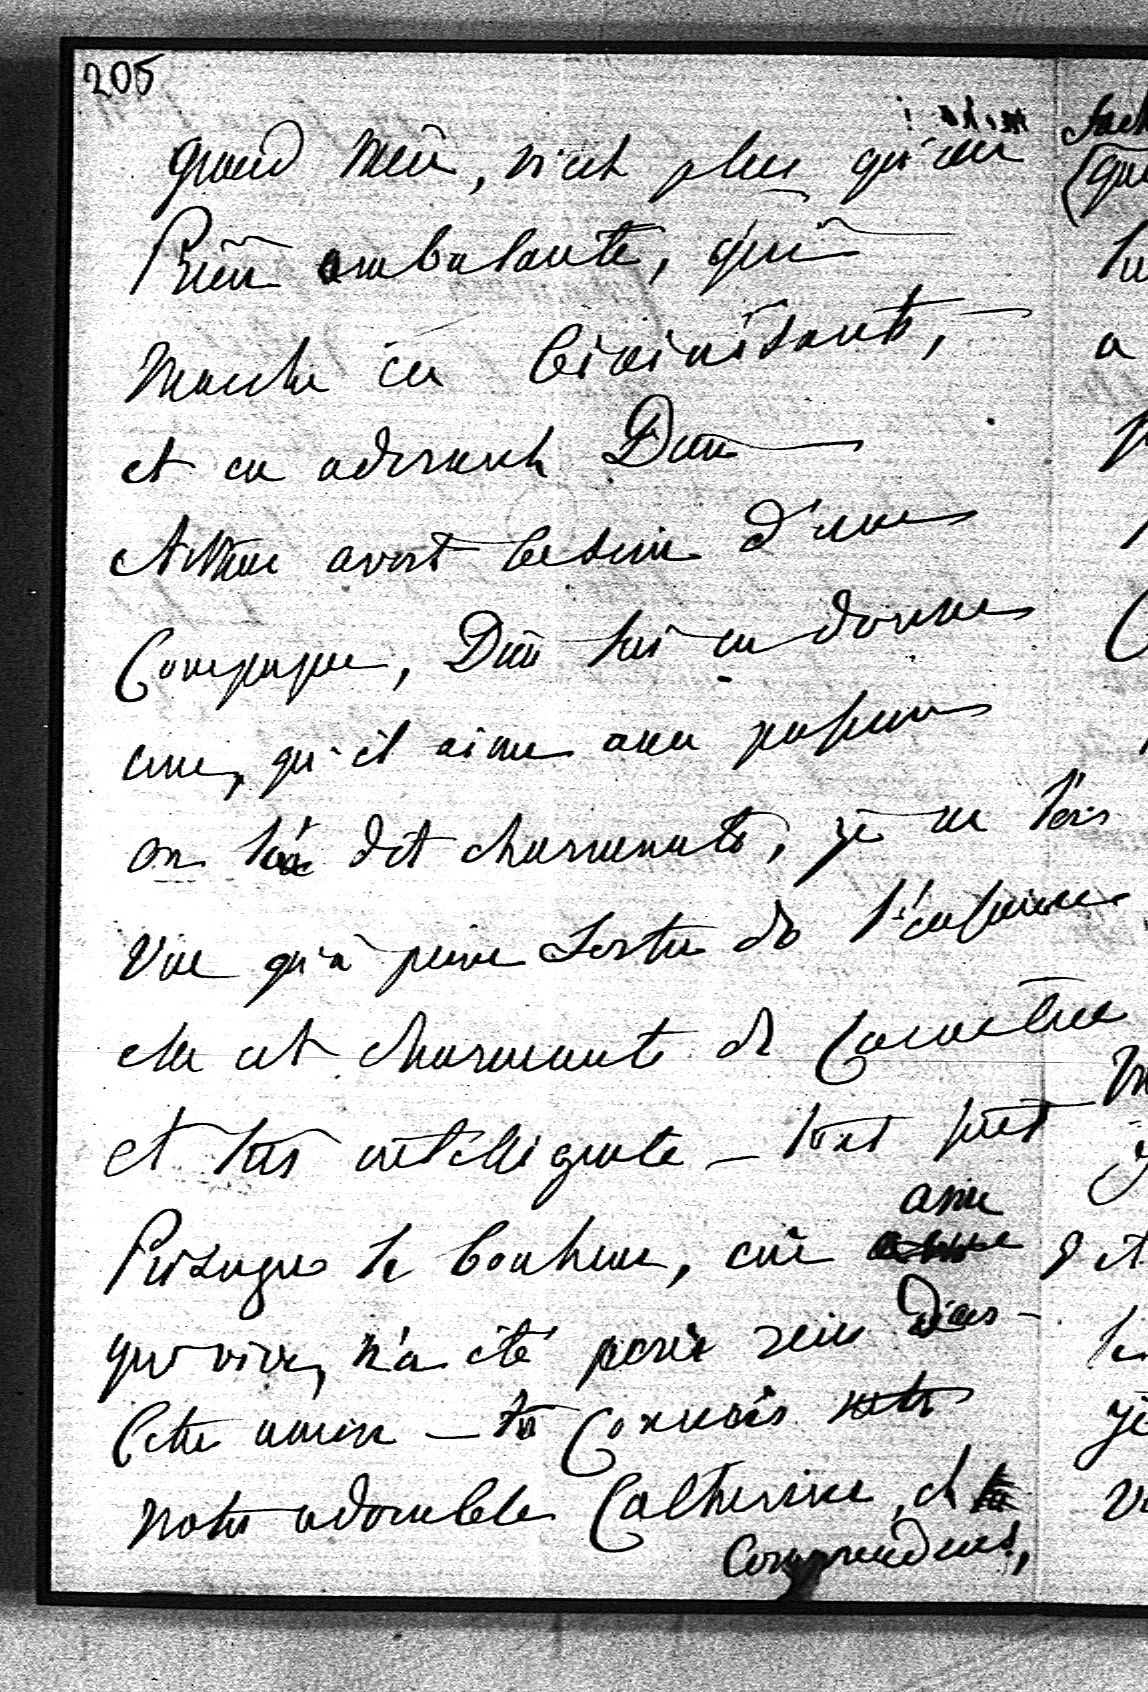 205
grand mère, n'est plus qu'une
Prière ambulante, qui
marche en bénissant,
et en adorant Dieu
Arthur avait besoin d'une
Compagne, Dieu lui en donne
une, qu'il aime avec passion
on la dit charmante, je ne l'ai
vue qu'à peine sortie de l'enfance
elle est charmante de Caractère
et très intelligente – tout fait
Présager le bonheur, une amie
qui vive, n'a été pour rien dans
Cette union – tu Connais
notre adorable Catherine, et
Comprendras,